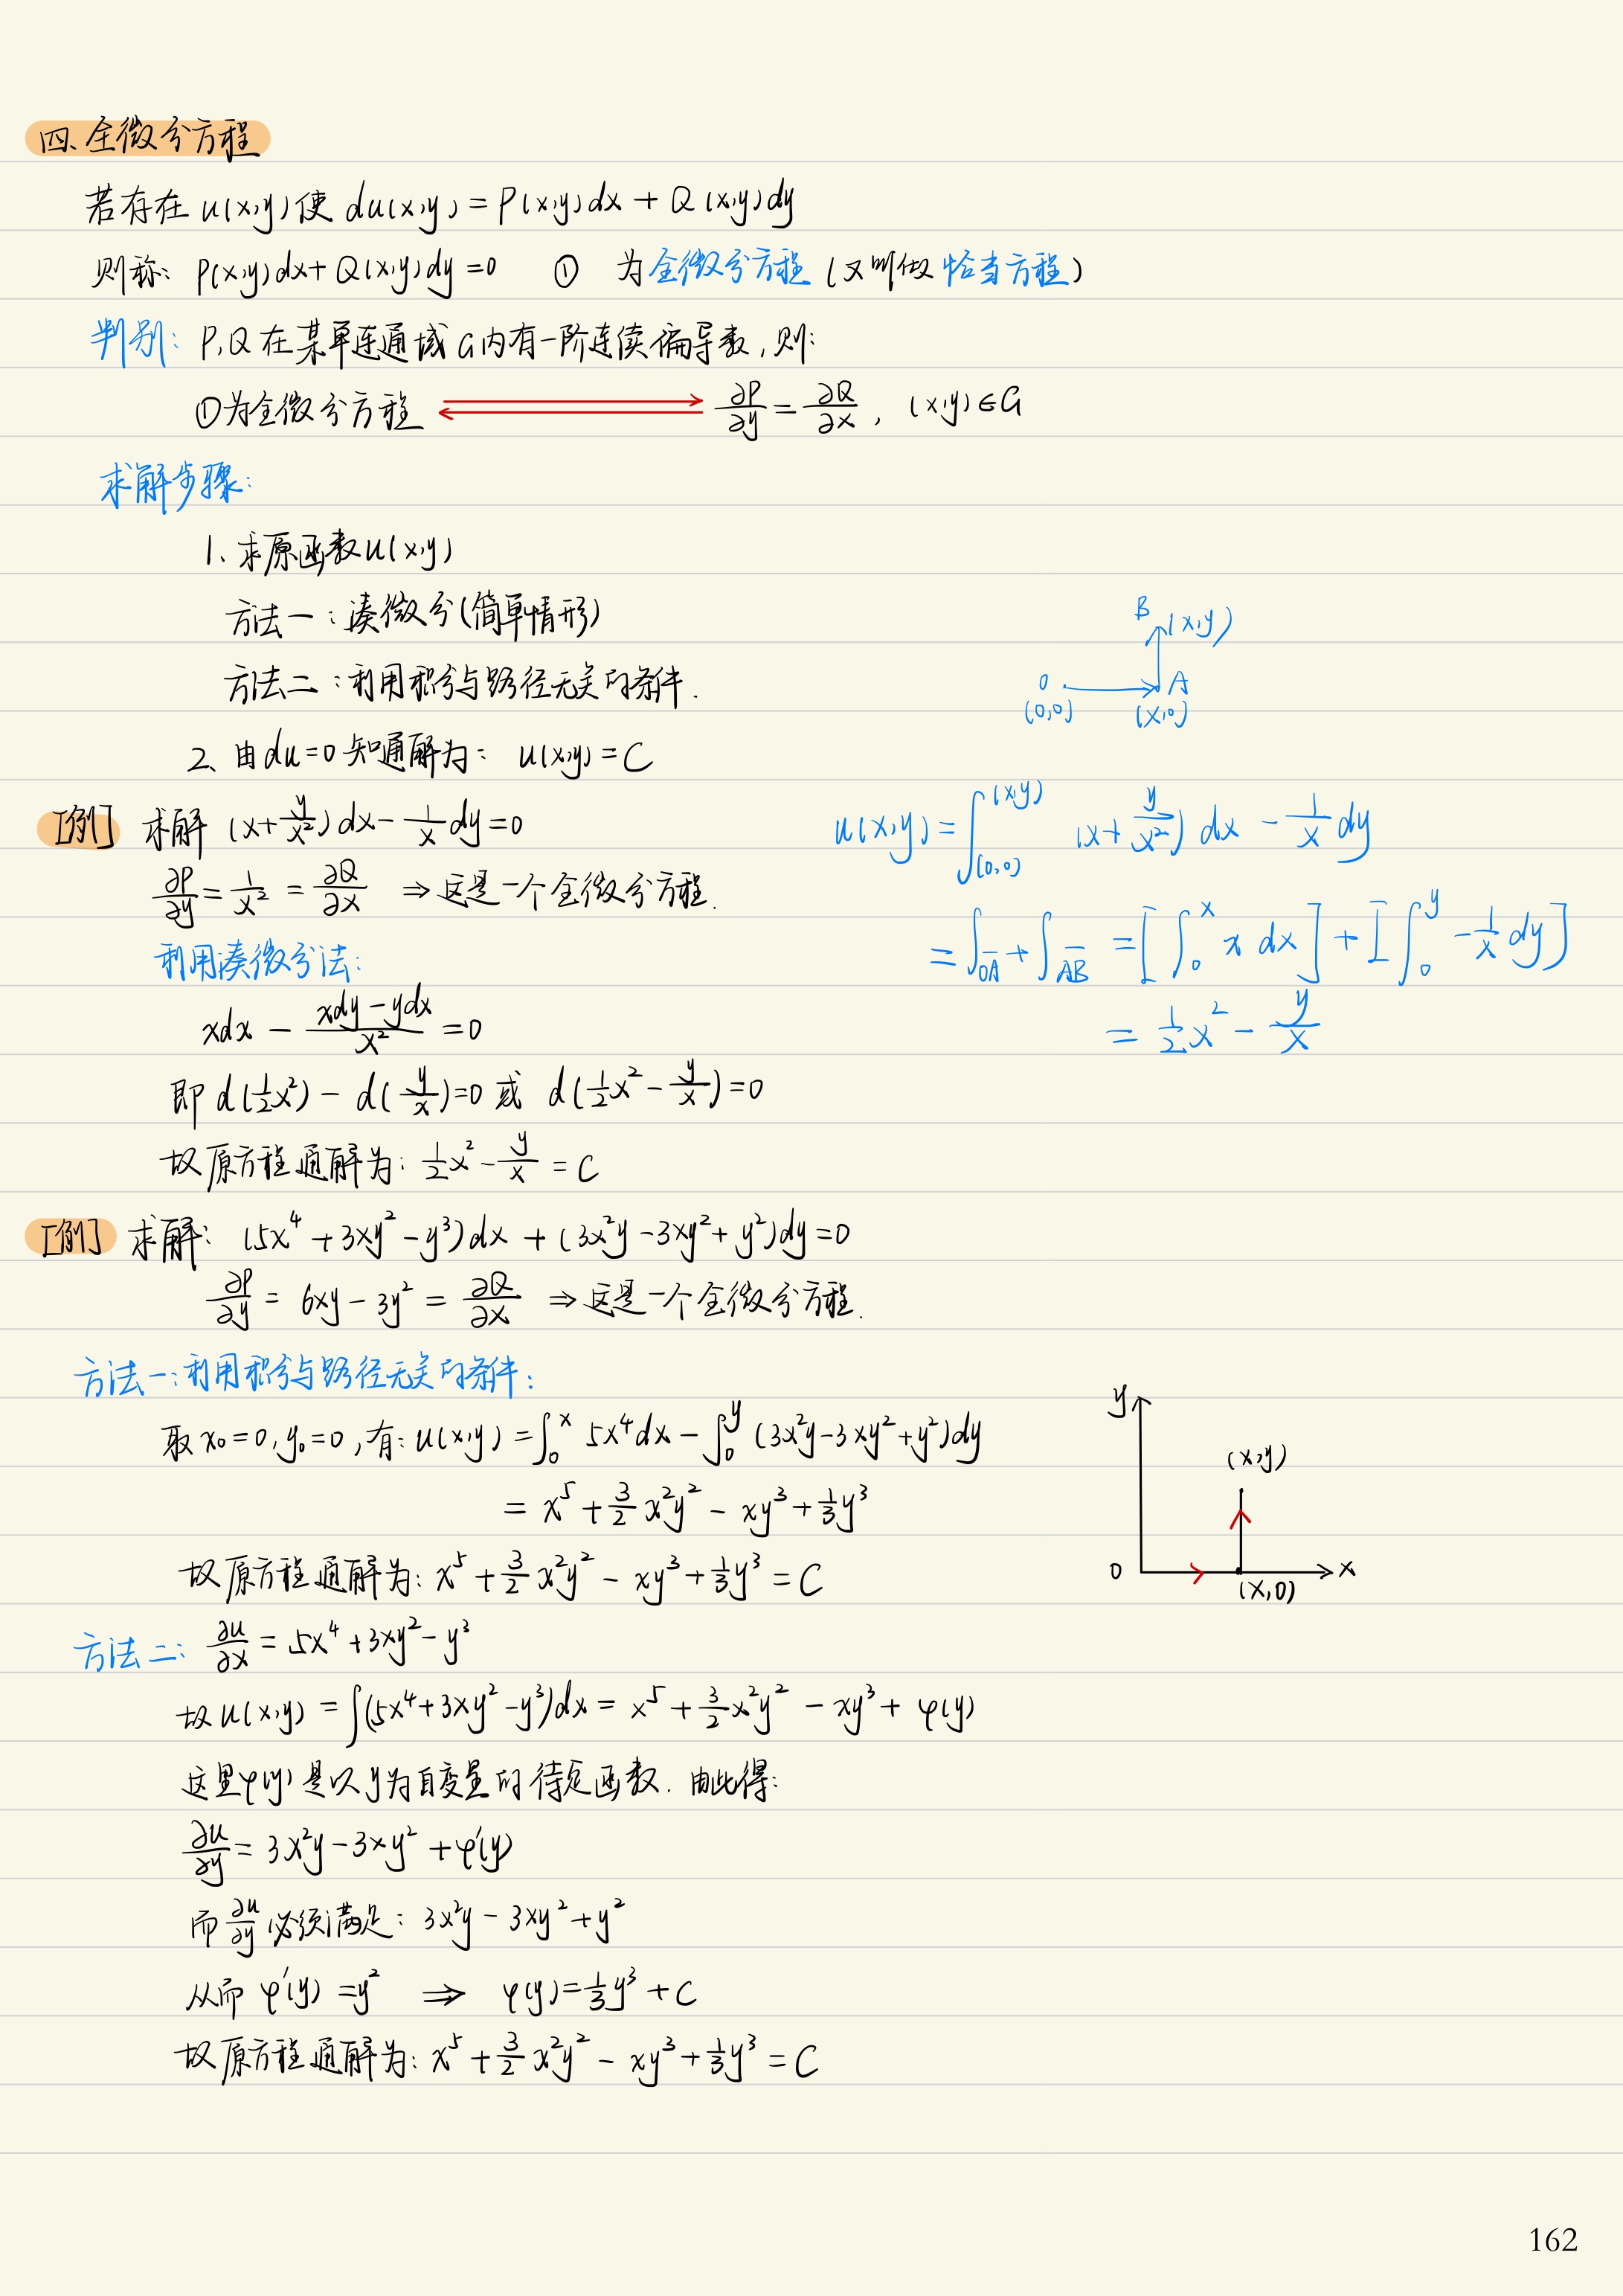 四、全微分方程
若存在 u(x,y) 使 du(x,y) = P(x,y)dx + Q(x,y)dy
则称: P(x,y)dx + Q(x,y)dy = 0 ① 为全微分方程 (又叫做恰当方程)
判别: P,Q 在某单连通域G内有一阶连续偏导数,则:
①为全微分方程 ⇄ ∂P/∂y = ∂Q/∂x , (x,y)∈G
求解步骤:
1、求原函数u(x,y)
方法一:凑微分(简单情形)
方法二:利用积分与路径无关的条件.
B (x,y)
0 A
(0,0) (x,0)
2、由du=0知通解为: u(x,y) = C
[例] 求解 (x+y/x²)dx - 1/x dy = 0
∂P/∂y = 1/x² = ∂Q/∂x ⇒ 这是一个全微分方程.
利用凑微分法:
xdx - (xdy-ydx)/x² = 0
即 d(½x²) - d(y/x) = 0 或 d(½x² - y/x) = 0
故原方程通解为: ½x² - y/x = C
u(x,y) = ∫_(0,0)^(x,y) (x+y/x²) dx - 1/x dy
= ∫_OA + ∫_AB = [∫_0^x x dx] + [∫_0^y -1/x dy]
= ½x² - y/x
[例] 求解: (5x⁴+3xy²-y³)dx + (3x²y-3xy²+y²)dy=0
∂P/∂y = 6xy - 3y² = ∂Q/∂x ⇒ 这是一个全微分方程.
方法一:利用积分与路径无关的条件:
取x₀=0,y₀=0,有: u(x,y) = ∫_0^x 5x⁴dx - ∫_0^y (3x²y-3xy²+y²)dy
= x⁵ + 3/2 x²y² - xy³ + ⅓y³
故原方程通解为: x⁵ + 3/2 x²y² - xy³ + ⅓y³ = C
y
(x,y)
0 x
(x,0)
方法二: ∂u/∂x = 5x⁴+3xy²-y³
故u(x,y) = ∫(5x⁴+3xy²-y³)dx = x⁵ + 3/2 x²y² - xy³ + φ(y)
这里φ(y)是以y为自变量的待定函数. 由此得:
∂u/∂y = 3x²y-3xy² + φ'(y)
而 ∂u/∂y 必须满足: 3x²y - 3xy² + y²
从而 φ'(y) = y² ⇒ φ(y) = ⅓y³ + C
故原方程通解为: x⁵ + 3/2 x²y² - xy³ + ⅓y³ = C
162